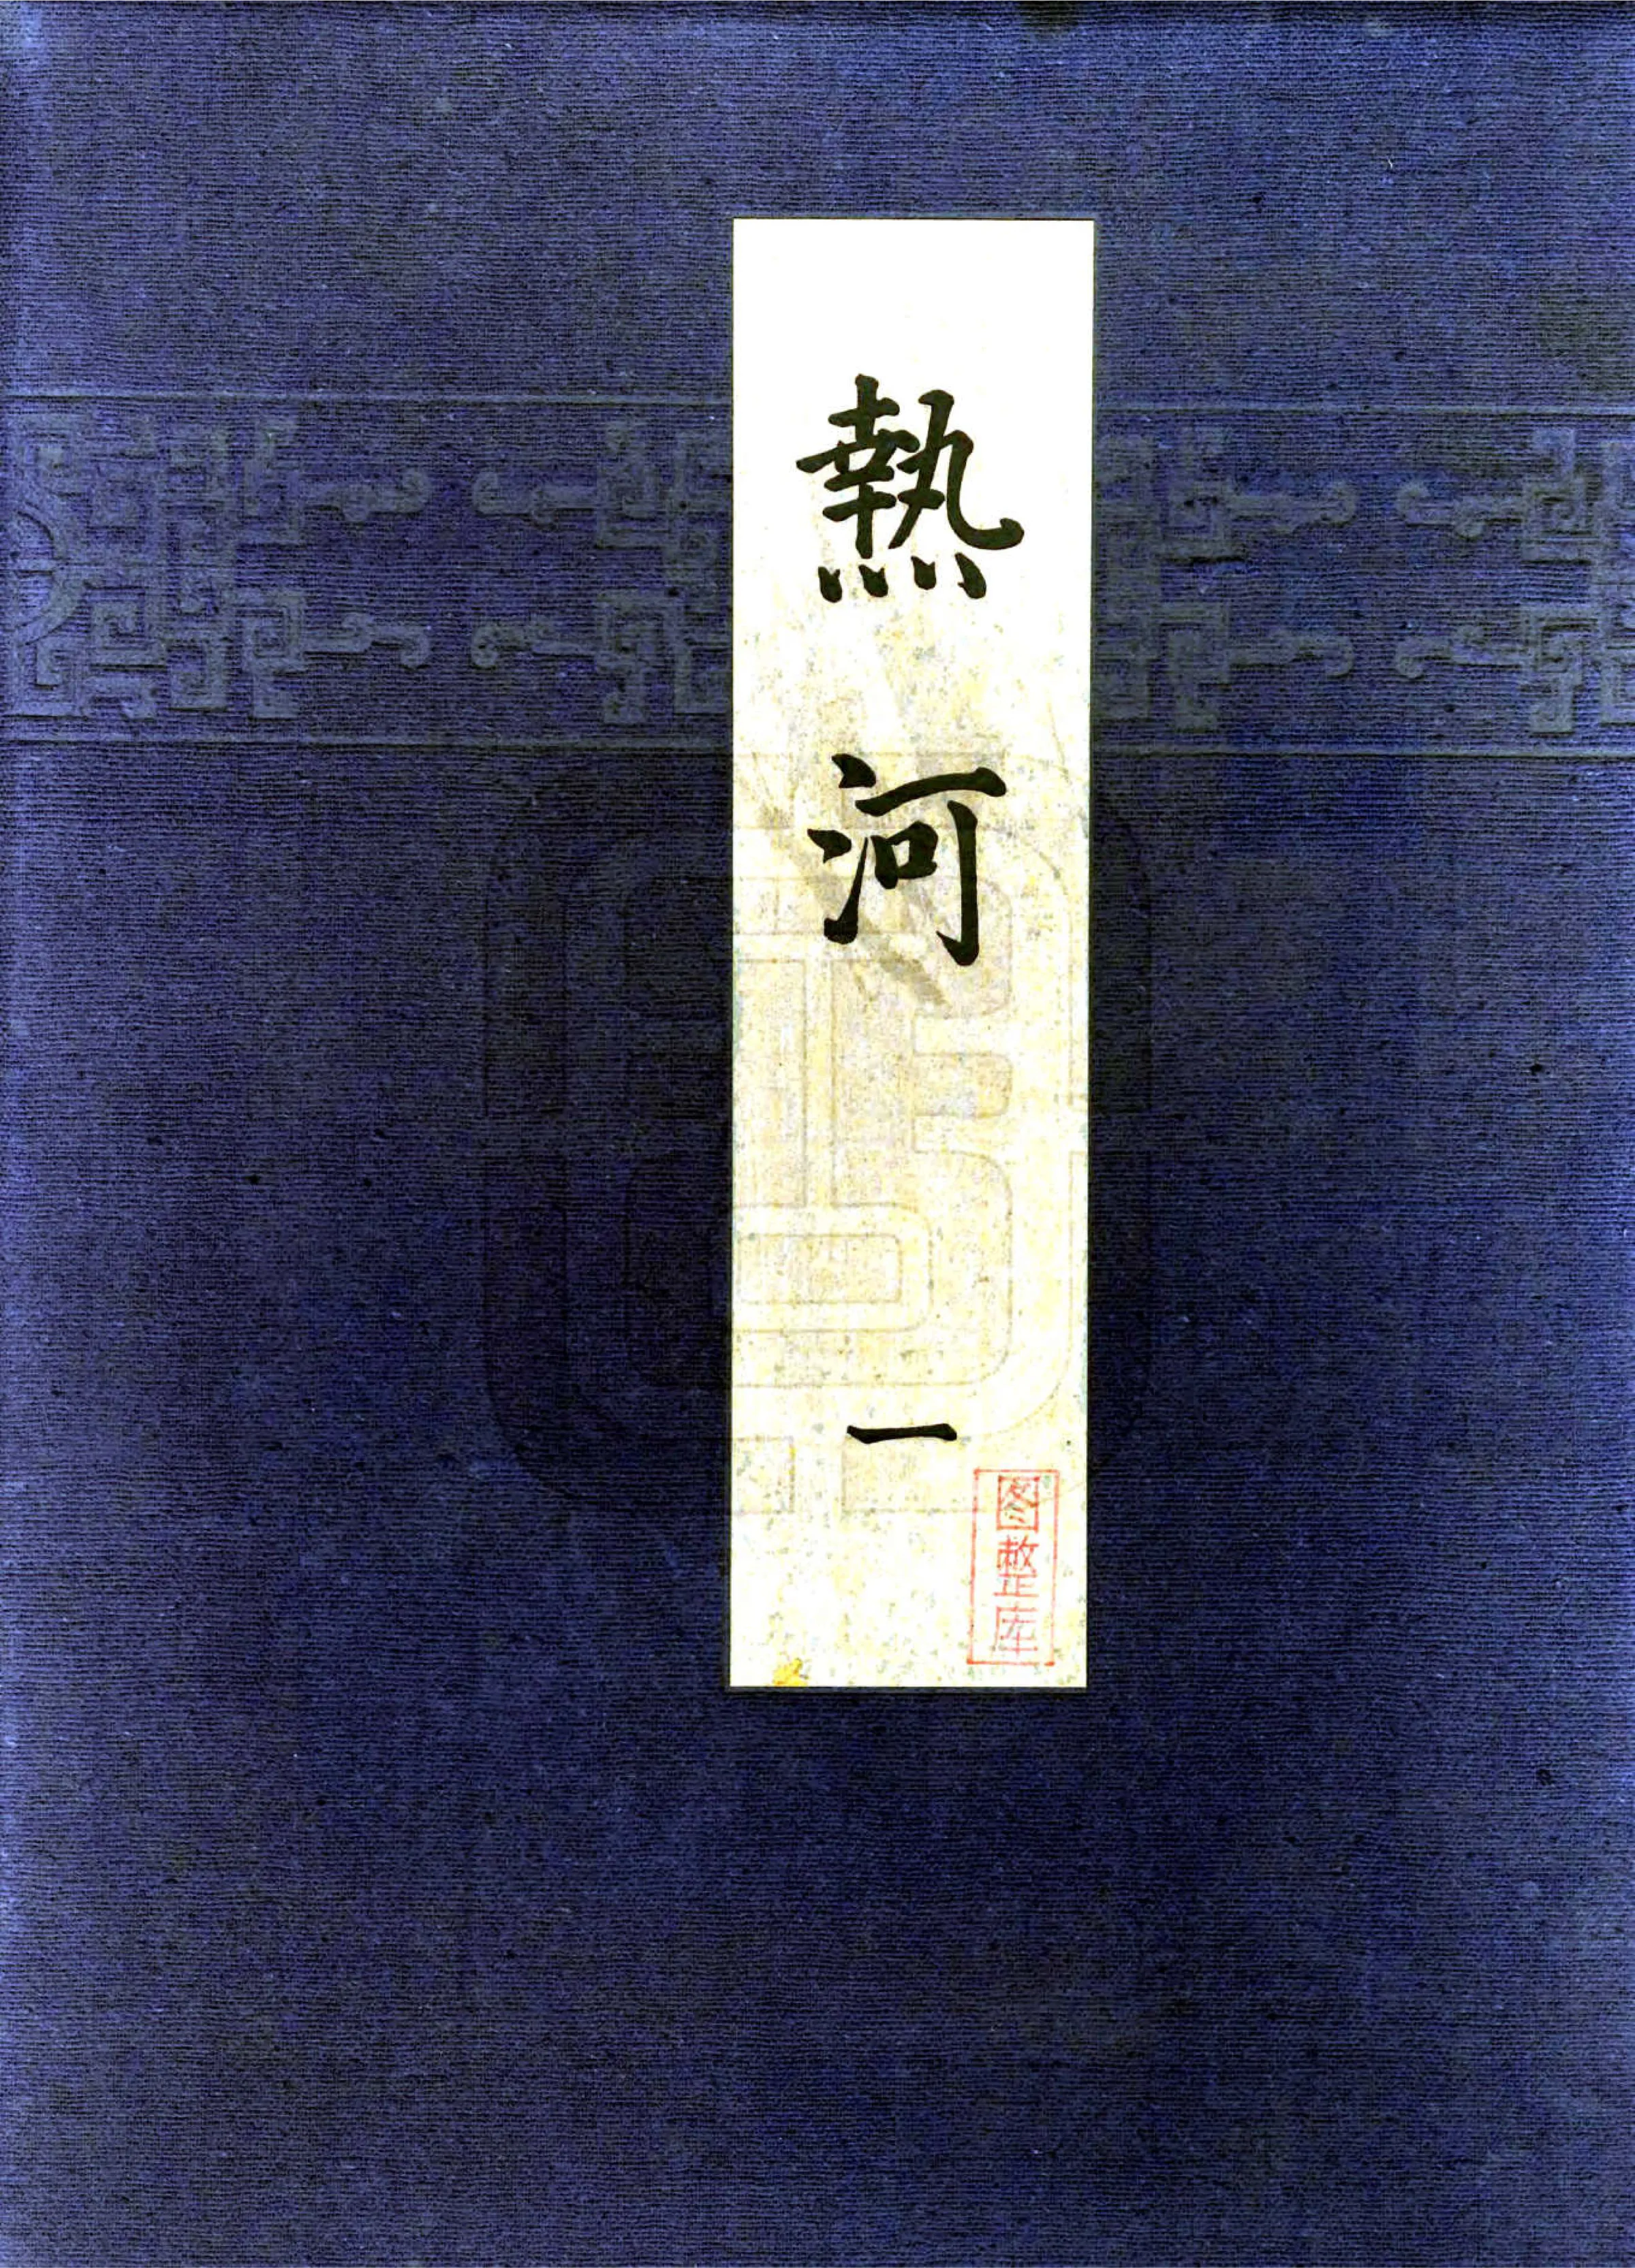 熱河
一
图整库